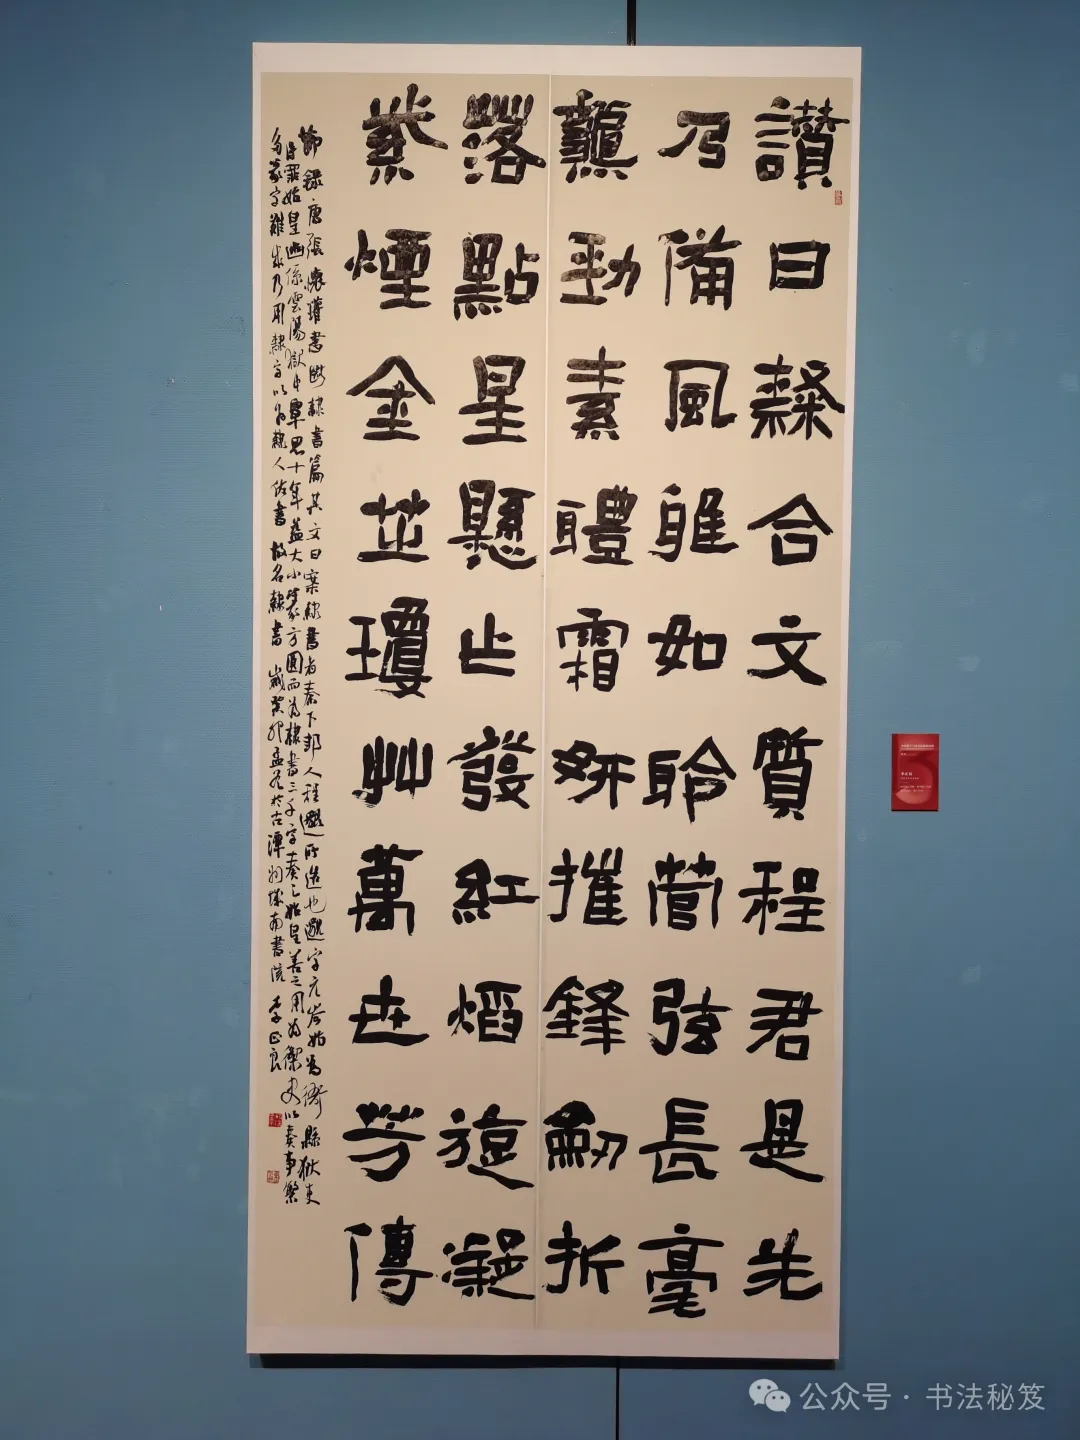 讃曰隸合文質程君是先
乃備風雅如聆管弦長毫
麤勁素體霜妍摧鋒劒折
落點星懸乍發紅熖旋凝
紫煙金芝瓊艸萬世芳傳
節錄唐張懷瓘書斷隸書篇其文曰案隸書者秦下邽人程邈所造也邈字元岑始為衙縣獄吏
得罪始皇幽係雲陽獄中覃思十年益大小篆方圓而為隸書三千字奏之始皇善之用為御史以奏事繁
多篆字難成乃用隸字以為隸人佐書故名隸書 歲癸卯孟冬於古潭州城南書院 李正良
公众号·书法秘笈